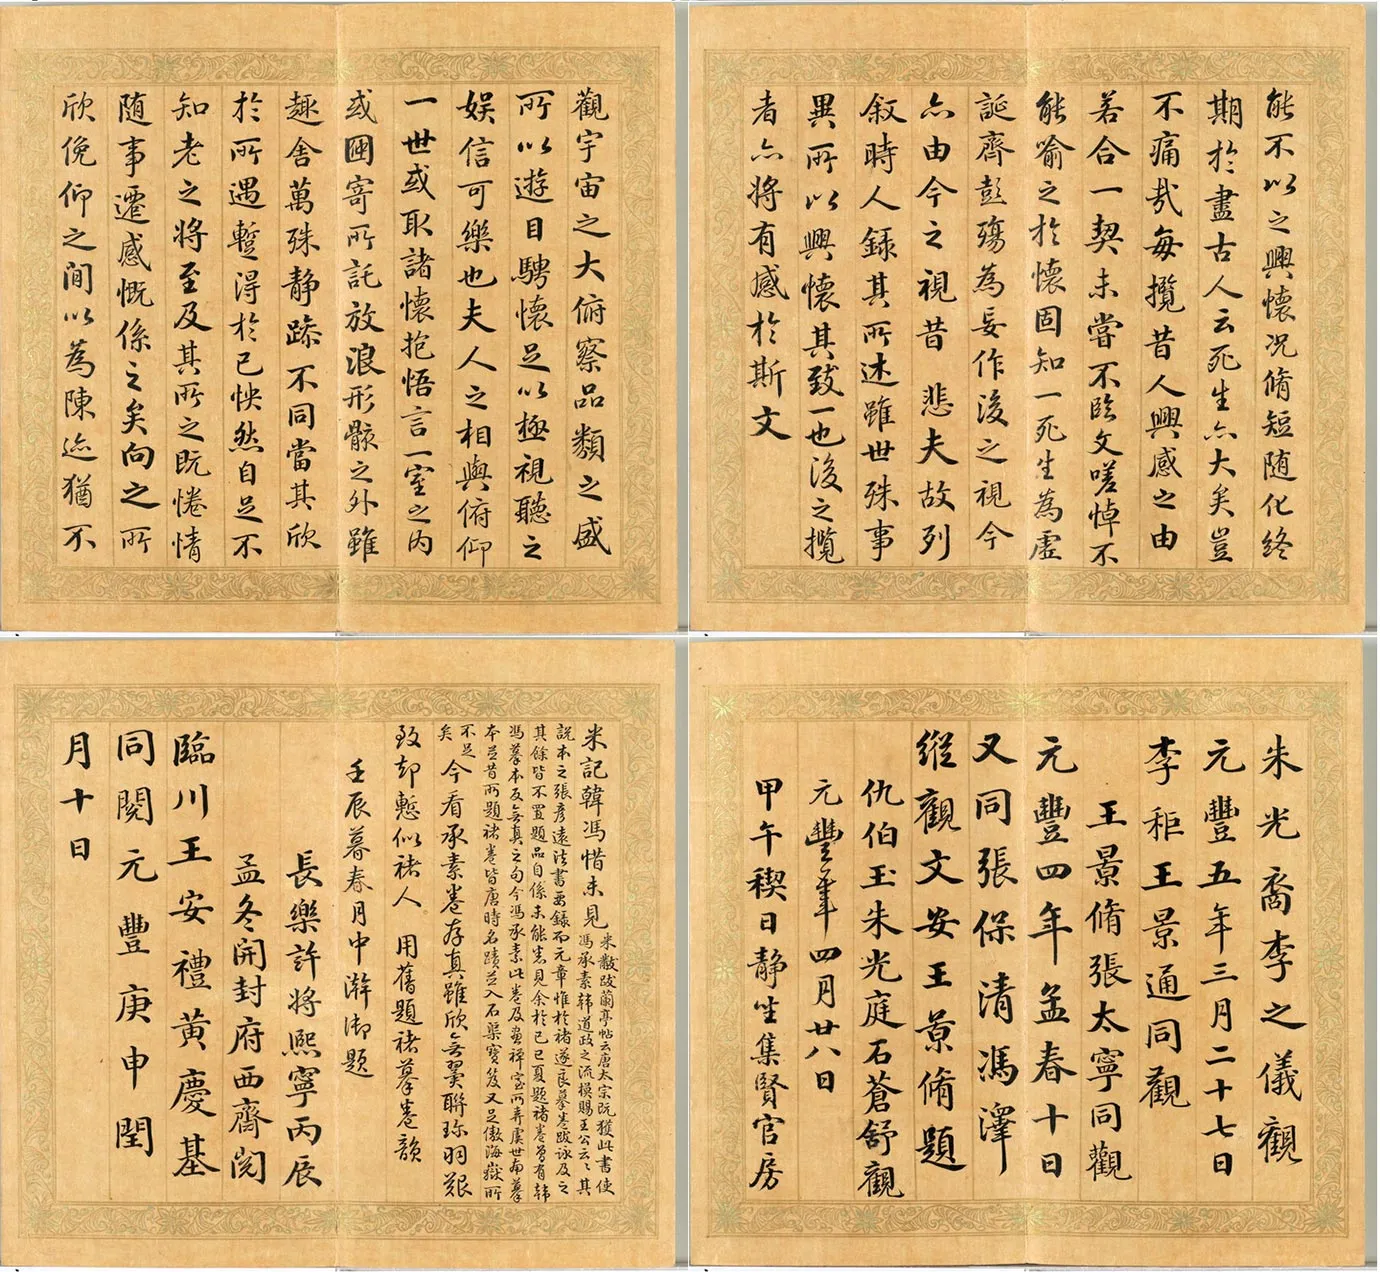 觀宇宙之大俯察品類之盛
所以遊目騁懷足以極視聽之
娛信可樂也夫人之相與俯仰
一世或取諸懷抱悟言一室之内
或因寄所託放浪形骸之外雖
趣舍萬殊静躁不同當其欣
於所遇蹔得於己怏然自足不
知老之將至及其所之既惓情
随事遷感慨係之矣向之所
欣俛仰之閒以為陳迹猶不
能不以之興懷况脩短随化終
期於盡古人云死生亦大矣豈
不痛哉每攬昔人興感之由
若合一契未嘗不臨文嗟悼不
能喻之於懷固知一死生為虛
誕齊彭殤為妄作後之視今
亦由今之視昔悲夫故列
叙時人録其所述雖世殊事
異所以興懷其致一也後之攬
者亦將有感於斯文
米記韓馮惜未見
米黻跋蘭亭帖云唐太宗既獲此書使
馮承素韓道政之流模賜王公云々其
說本之張彥遠法書要録而元章惟於褚遂良摹卷跋詠及之
其餘皆不置題品自係未能悉見余於己巳夏題褚卷曾有韓
馮摹本及無真之句今馮承素此卷及畫禪室所弆虞世南摹
本並昔所題褚卷皆唐時名蹟並入石渠寶笈又足傲海嶽所
不足
矣
今看承素卷存真雖欣無翼聯珎羽艱
致却慙似褚人 用舊題褚摹卷韻
壬辰暮春月中澣御題
長樂許將熙寧丙辰
孟冬開封府西齋閱
臨川王安禮黄慶基
同閱元豐庚申閏
月十日
朱光裔李之儀觀
元豐五年三月二十七日
李秬王景通同觀
王景脩張太寧同觀
元豐四年孟春十日
又同張保清馮澤
縱觀文安王景脩題
仇伯玉朱光庭石蒼舒觀
元豐年四月廿八日
甲午稧日静坐集賢官房